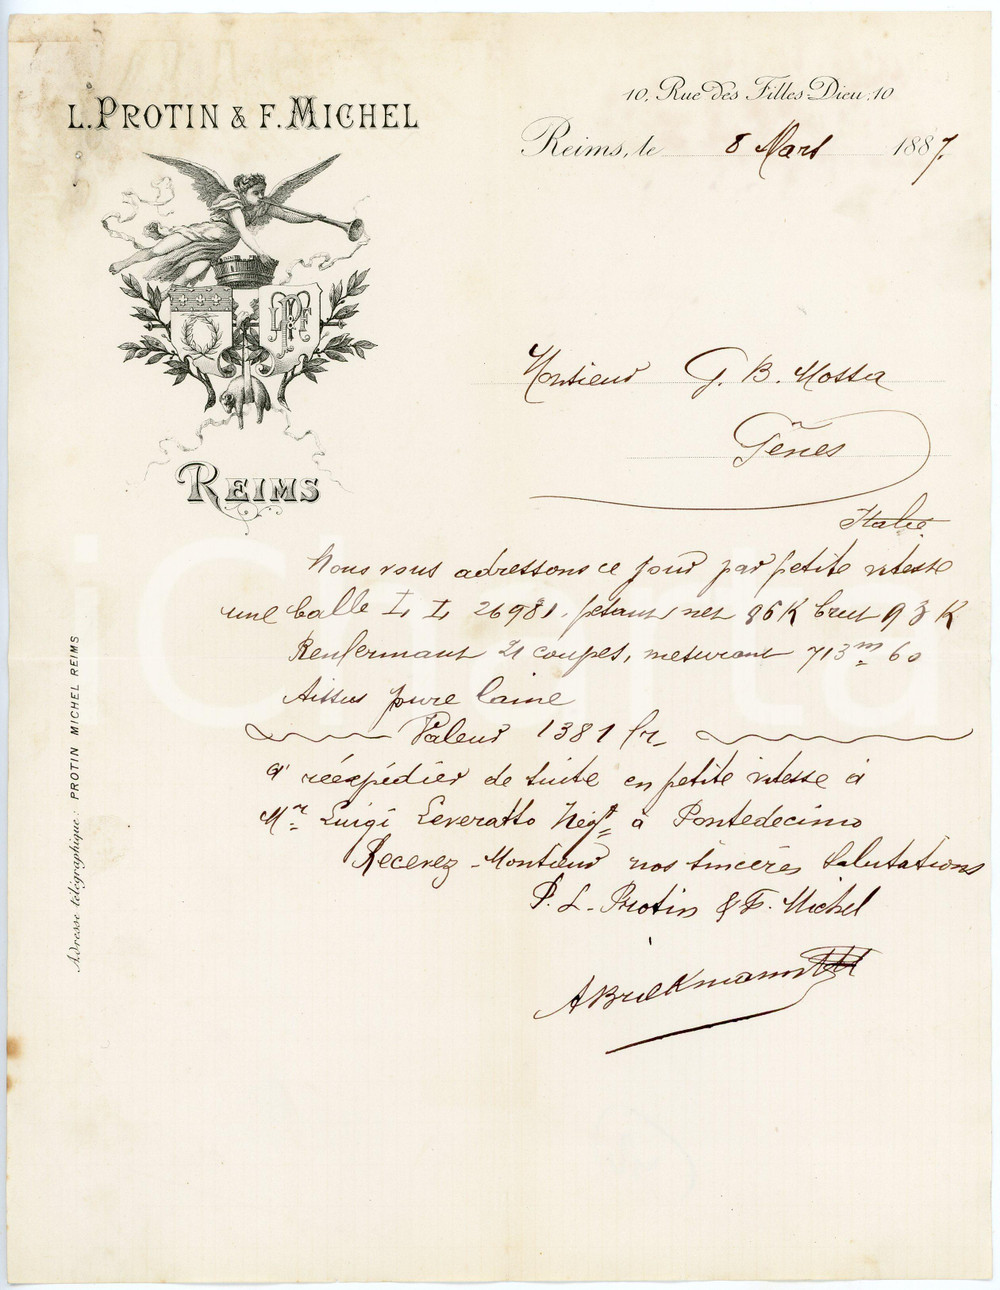 L. PROTIN & F. MICHEL
REIMS
10, Rue des Filles Dieu, 10
Reims, le 8 Mars 1887.
Monsieur G. B. Mossa
Gênes
Italie
Nous vous adressons ce jour par petite vitesse
une balle L L 26981. pesant net 86K brut 93K
Renfermant 21 coupes, mesurant 713m 60
tissus pure laine
Valeur 1381 fr.
à réexpédier de suite en petite vitesse à
Mr Luigi Leveratto Négt à Pontedecimo
Recevez Monsieur nos sincères salutations
P. L. Protin & F. Michel
Adresse télégraphique: PROTIN MICHEL REIMS
iCharta